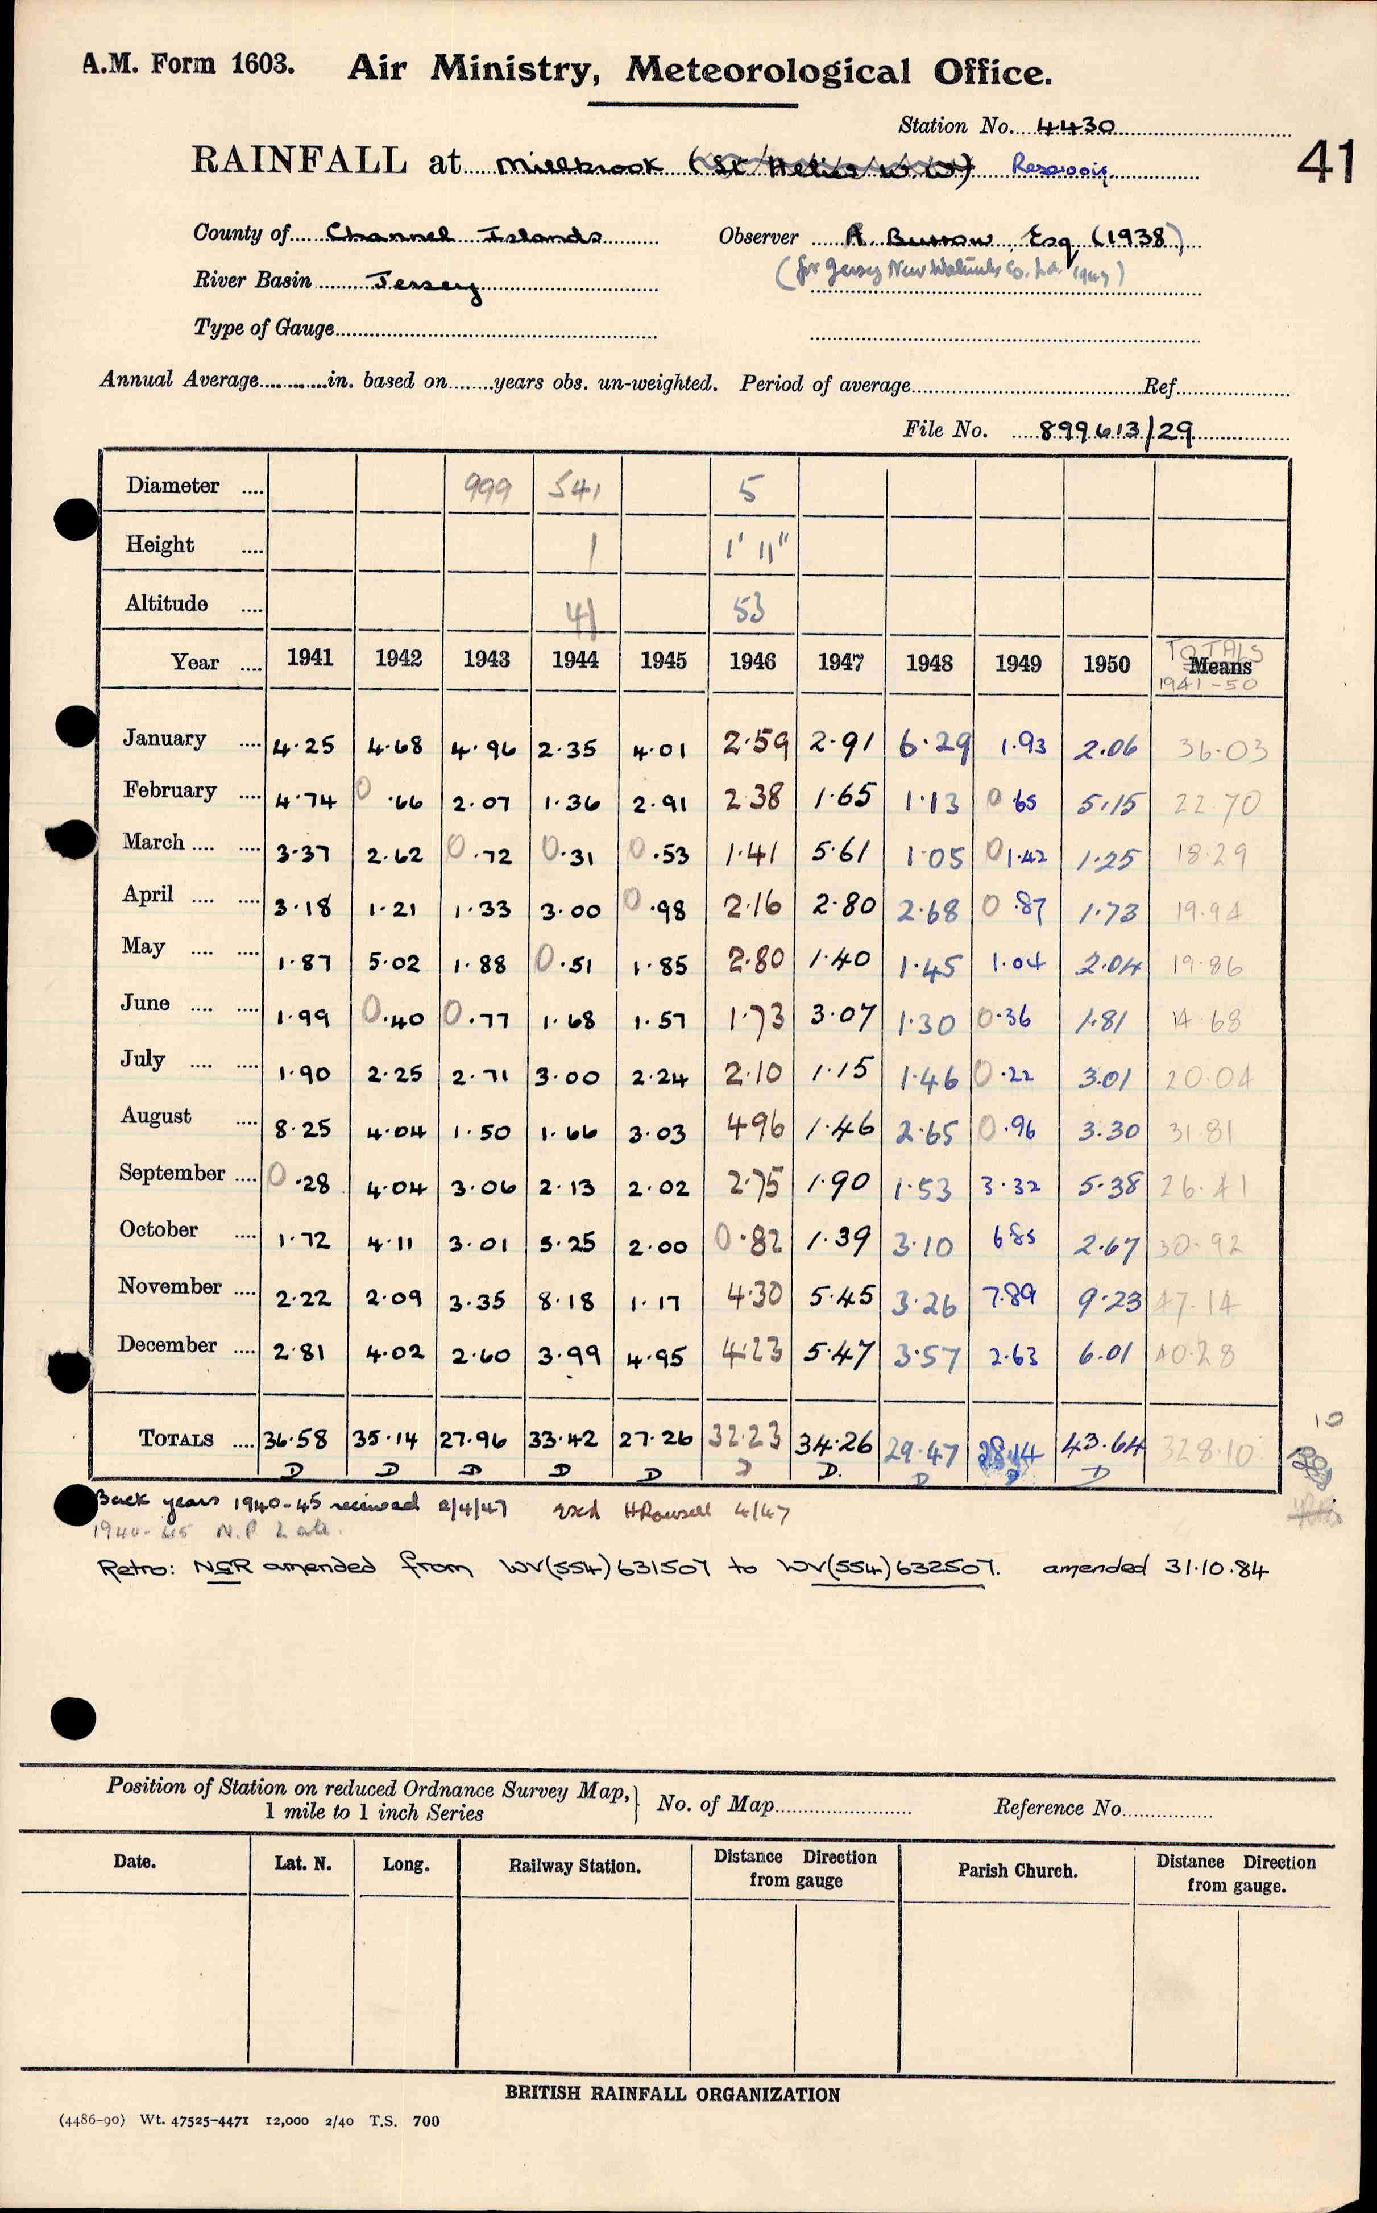 A.M. Form 1603. Air Ministry, Meteorological Office.
Station No. 4430
41
RAINFALL at Millbrook (St Helier W.W) Reservoir
County of Channel Islands Observer A. Burrow Esq (1938)
River Basin Jersey (for Jersey New Waterworks Co. Ltd 1947)
Type of Gauge
Annual Average in. based on years obs. un-weighted. Period of average Ref
File No. 899613/29
Diameter 999 541 5
Height 1 1' 11"
Altitude 41 53
Year 1941 1942 1943 1944 1945 1946 1947 1948 1949 1950 Means TOTALS 1941-50
January 4.25 4.68 4.96 2.35 4.01 2.59 2.91 6.29 1.93 2.06 36.03
February 4.74 0.66 2.07 1.36 2.91 2.38 1.65 1.13 0.65 5.15 22.70
March 3.37 2.62 0.72 0.31 0.53 1.41 5.61 1.05 01.42 1.25 18.29
April 3.18 1.21 1.33 3.00 0.98 2.16 2.80 2.68 0.87 1.73 19.94
May 1.87 5.02 1.88 0.51 1.85 2.80 1.40 1.45 1.04 2.04 19.86
June 1.99 0.40 0.77 1.68 1.57 1.73 3.07 1.30 0.36 1.81 14.68
July 1.90 2.25 2.71 3.00 2.24 2.10 1.15 1.46 0.22 3.01 20.04
August 8.25 4.04 1.50 1.66 3.03 4.96 1.46 2.65 0.96 3.30 31.81
September 0.28 4.04 3.06 2.13 2.02 2.75 1.90 1.53 3.32 5.38 26.41
October 1.72 4.11 3.01 5.25 2.00 0.82 1.39 3.10 6.85 2.67 30.92
November 2.22 2.09 3.35 8.18 1.17 4.30 5.45 3.26 7.89 9.23 47.14
December 2.81 4.02 2.60 3.99 4.95 4.23 5.47 3.57 2.63 6.01 40.28
10
TOTALS 36.58 35.14 27.96 33.42 27.26 32.23 34.26 29.47 28.14 43.64 328.10
D D D D D D D. D D D
Back years 1940-45 received 2/4/47 Exd H Rowsell 4/47
1940-45 N.P Late.
Retro: NGR amended from WV(554)631507 to WV(554)632507. amended 31.10.84
Position of Station on reduced Ordnance Survey Map, 1 mile to 1 inch Series No. of Map Reference No.
Date. Lat. N. Long. Railway Station. Distance Direction from gauge Parish Church. Distance Direction from gauge.
BRITISH RAINFALL ORGANIZATION
(4486-90) Wt. 47525-4471 12,000 2/40 T.S. 700